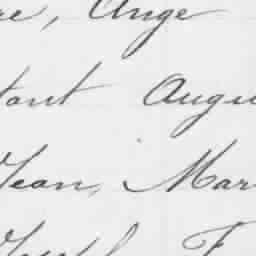 re, Ange
tant Augu
Jean, Mar